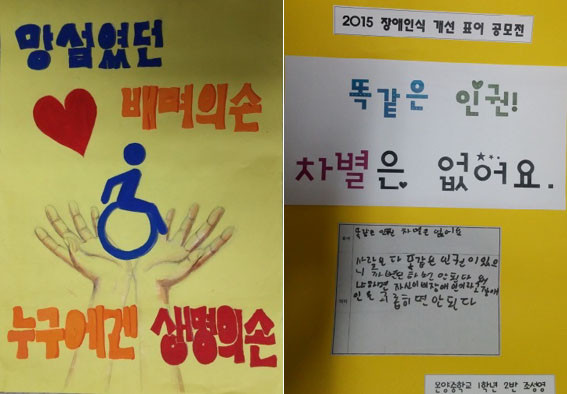 망설였던
배려의손
누구에겐 생명의손
2015 장애인식 개선 표어 공모전
똑같은 인권!
차별은 없어요.
똑같은 인권 차별은 없어요
사람은 다 똑같은 인권이 있으
니 차별은 하면 안된다 왜
냐하면 자신이 비장애인이라고 장애
인을 괴롭히면 안된다
온양중학교 1학년 2반 조성영